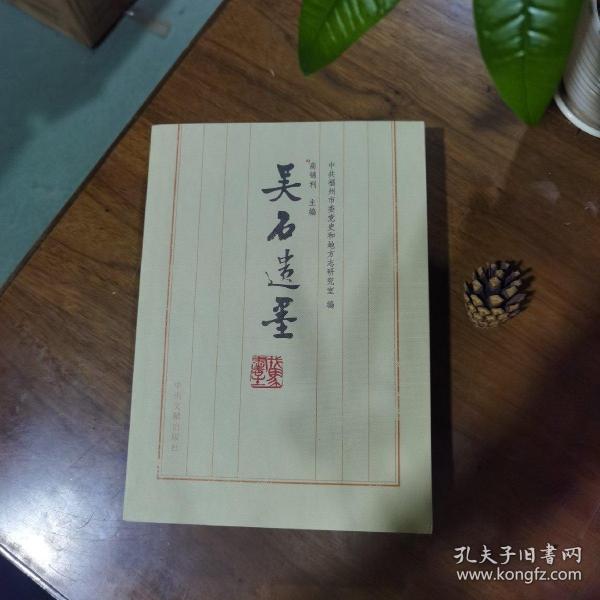 中共福州市委党史和地方志研究室 编
主编
吴石遗墨
中央文献出版社
孔夫子旧书网
www.kongfz.com